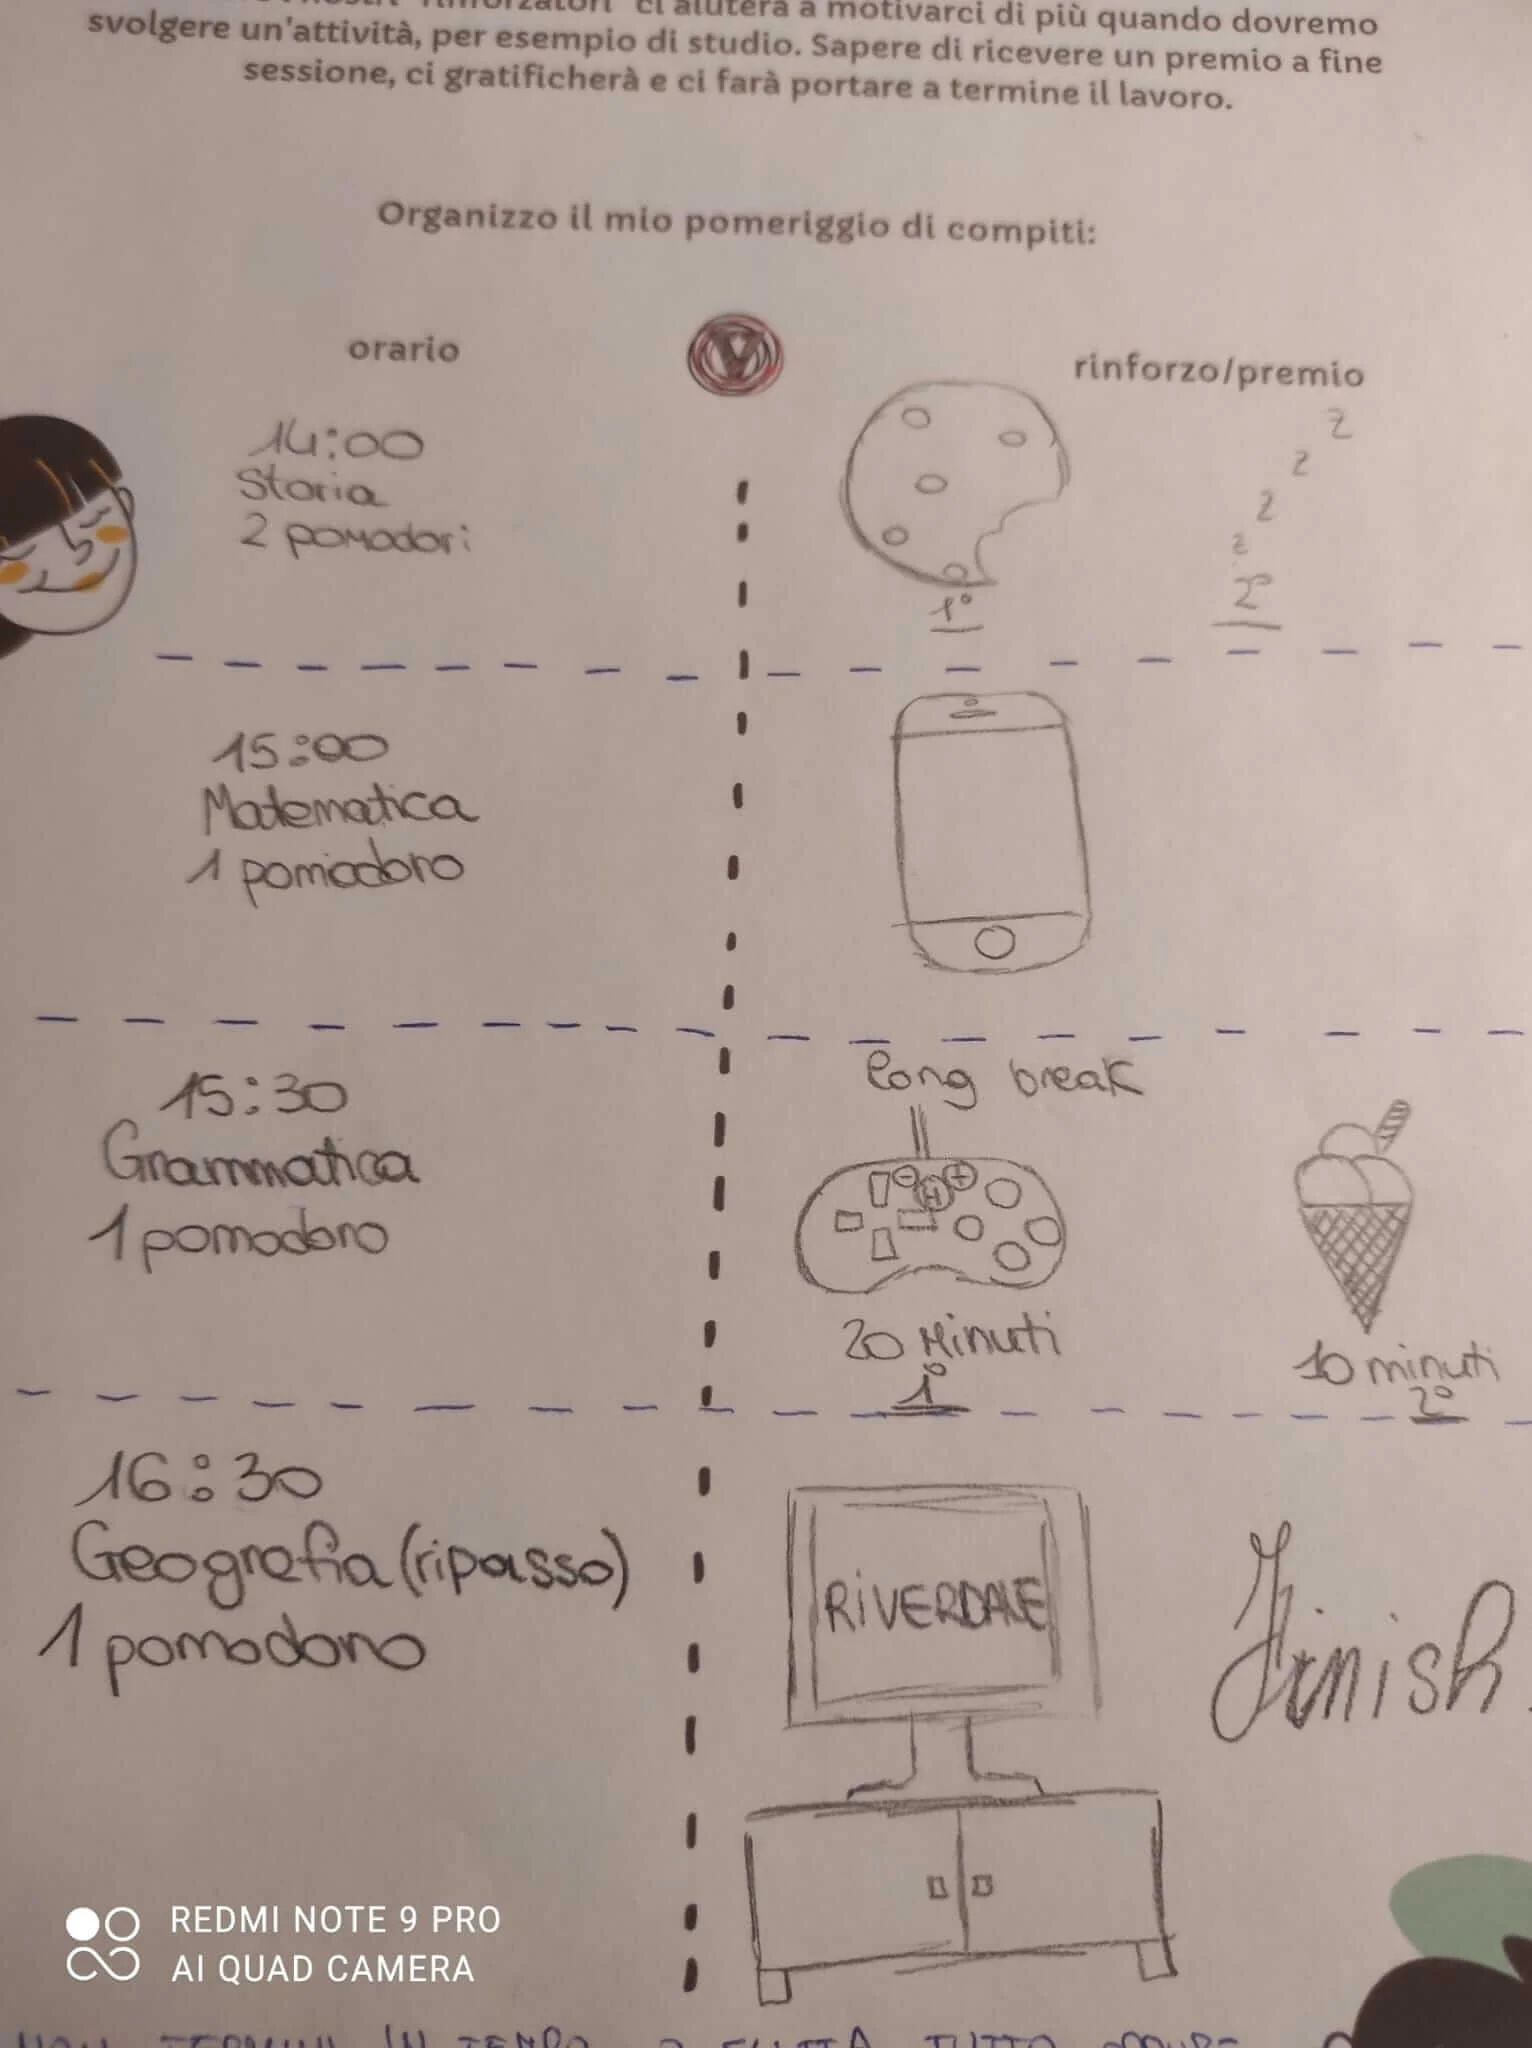 "rinforzatori" ci aiuterà a motivarci di più quando dovremo
svolgere un'attività, per esempio di studio. Sapere di ricevere un premio a fine
sessione, ci gratificherà e ci farà portare a termine il lavoro.
Organizzo il mio pomeriggio di compiti:
orario
V
rinforzo/premio
14:00
Storia
2 pomodori
z
z
z
z
1°
2°
15:00
Matematica
1 pomodoro
15:30
Grammatica
1 pomodoro
long break
- H +
20 minuti
1°
10 minuti
2°
16:30
Geografia (ripasso)
1 pomodoro
RiVERDALE
Finish.
REDMI NOTE 9 PRO
AI QUAD CAMERA
IN TEMPO TUTTO